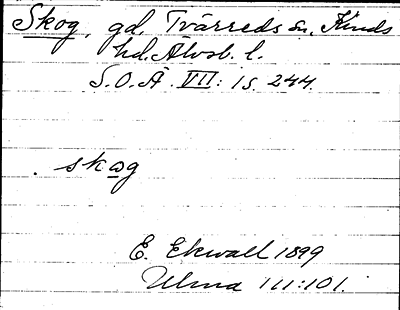 Skog, gd. Tvärreds sn, Kinds
hd. Älvsb. l.
S.O.Ä VII: 1 s. 244.
skog
E. Ekwall 1899
Ulma 111:101.